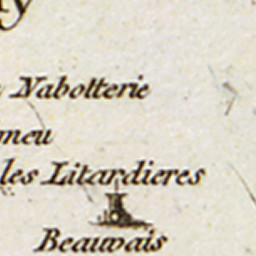 Nabotterie
meu
les Litardieres
Beauvais